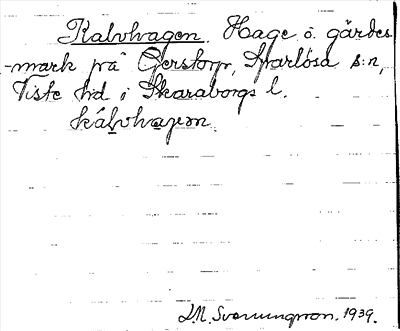 Kalvhagen. Hage o. gärdes
-mark på Gerstorp, Sparlösa s:n,
Viste hd i Skaraborgs l.
kálvhaɡɷn
J.N. Svenningsson. 1939.